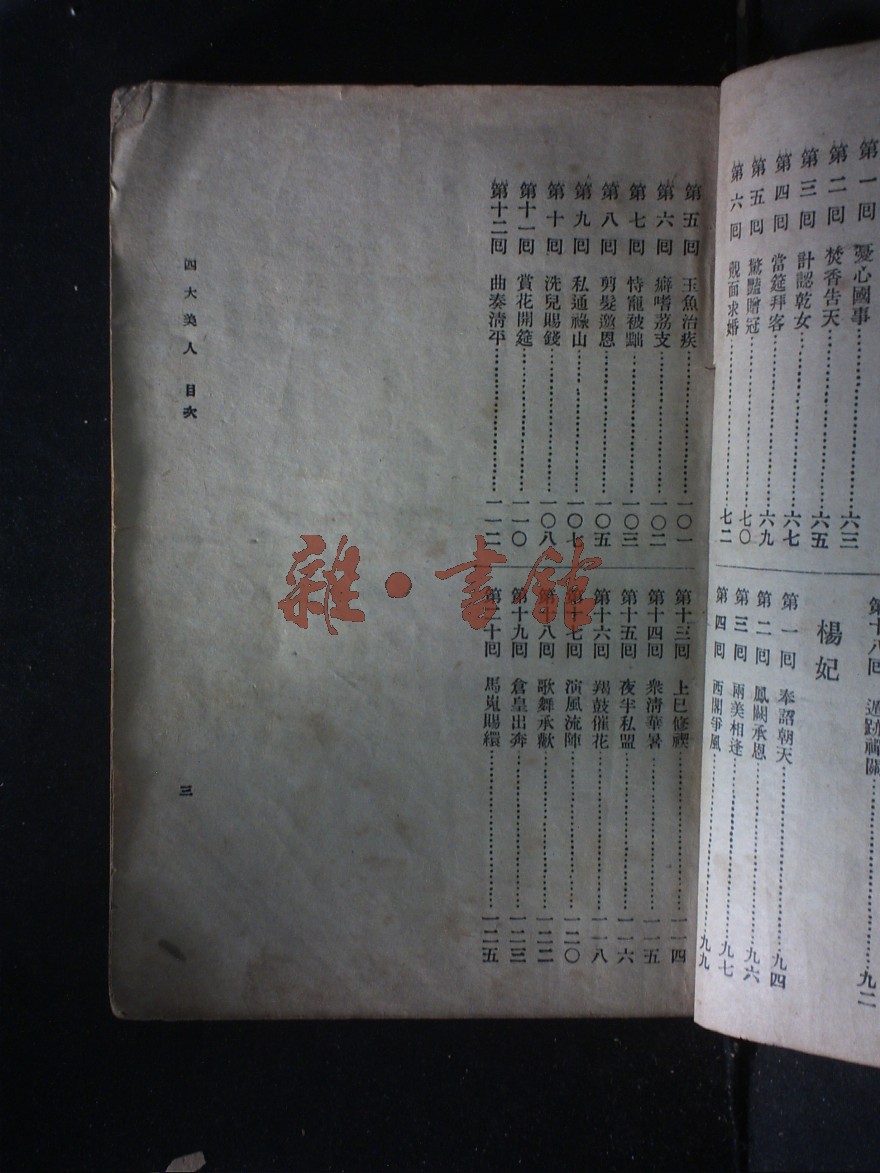 第一回 憂心國事 六三
第二回 焚香告天 六五
第三回 計認乾女 六七
第四回 當筵拜客 六九
第五回 驚豔贈冠 七〇
第六回 覿面求婚 七二
第十八回 遁跡禪關 九二
楊妃
第一回 奉詔朝天 九四
第二回 鳳闕承恩 九六
第三回 兩美相逢 九七
第四回 西閣爭風 九九
第五回 玉魚治疾 一〇一
第六回 癖嗜荔支 一〇二
第七回 恃寵被黜 一〇三
第八回 剪髮邀恩 一〇五
第九回 私通祿山 一〇七
第十回 洗兒賜錢 一〇八
第十一回 賞花開筵 一一〇
第十二回 曲奏清平 一一二
第十三回 上巳修禊 一一四
第十四回 衆清華暑 一一五
第十五回 夜半私盟 一一六
第十六回 羯鼓催花 一一八
第十七回 演風流陣 一二〇
第十八回 歌舞承歡 一二二
第十九回 倉皇出奔 一二三
第二十回 馬嵬賜繯 一二五
四大美人 目次
三
雜·書館